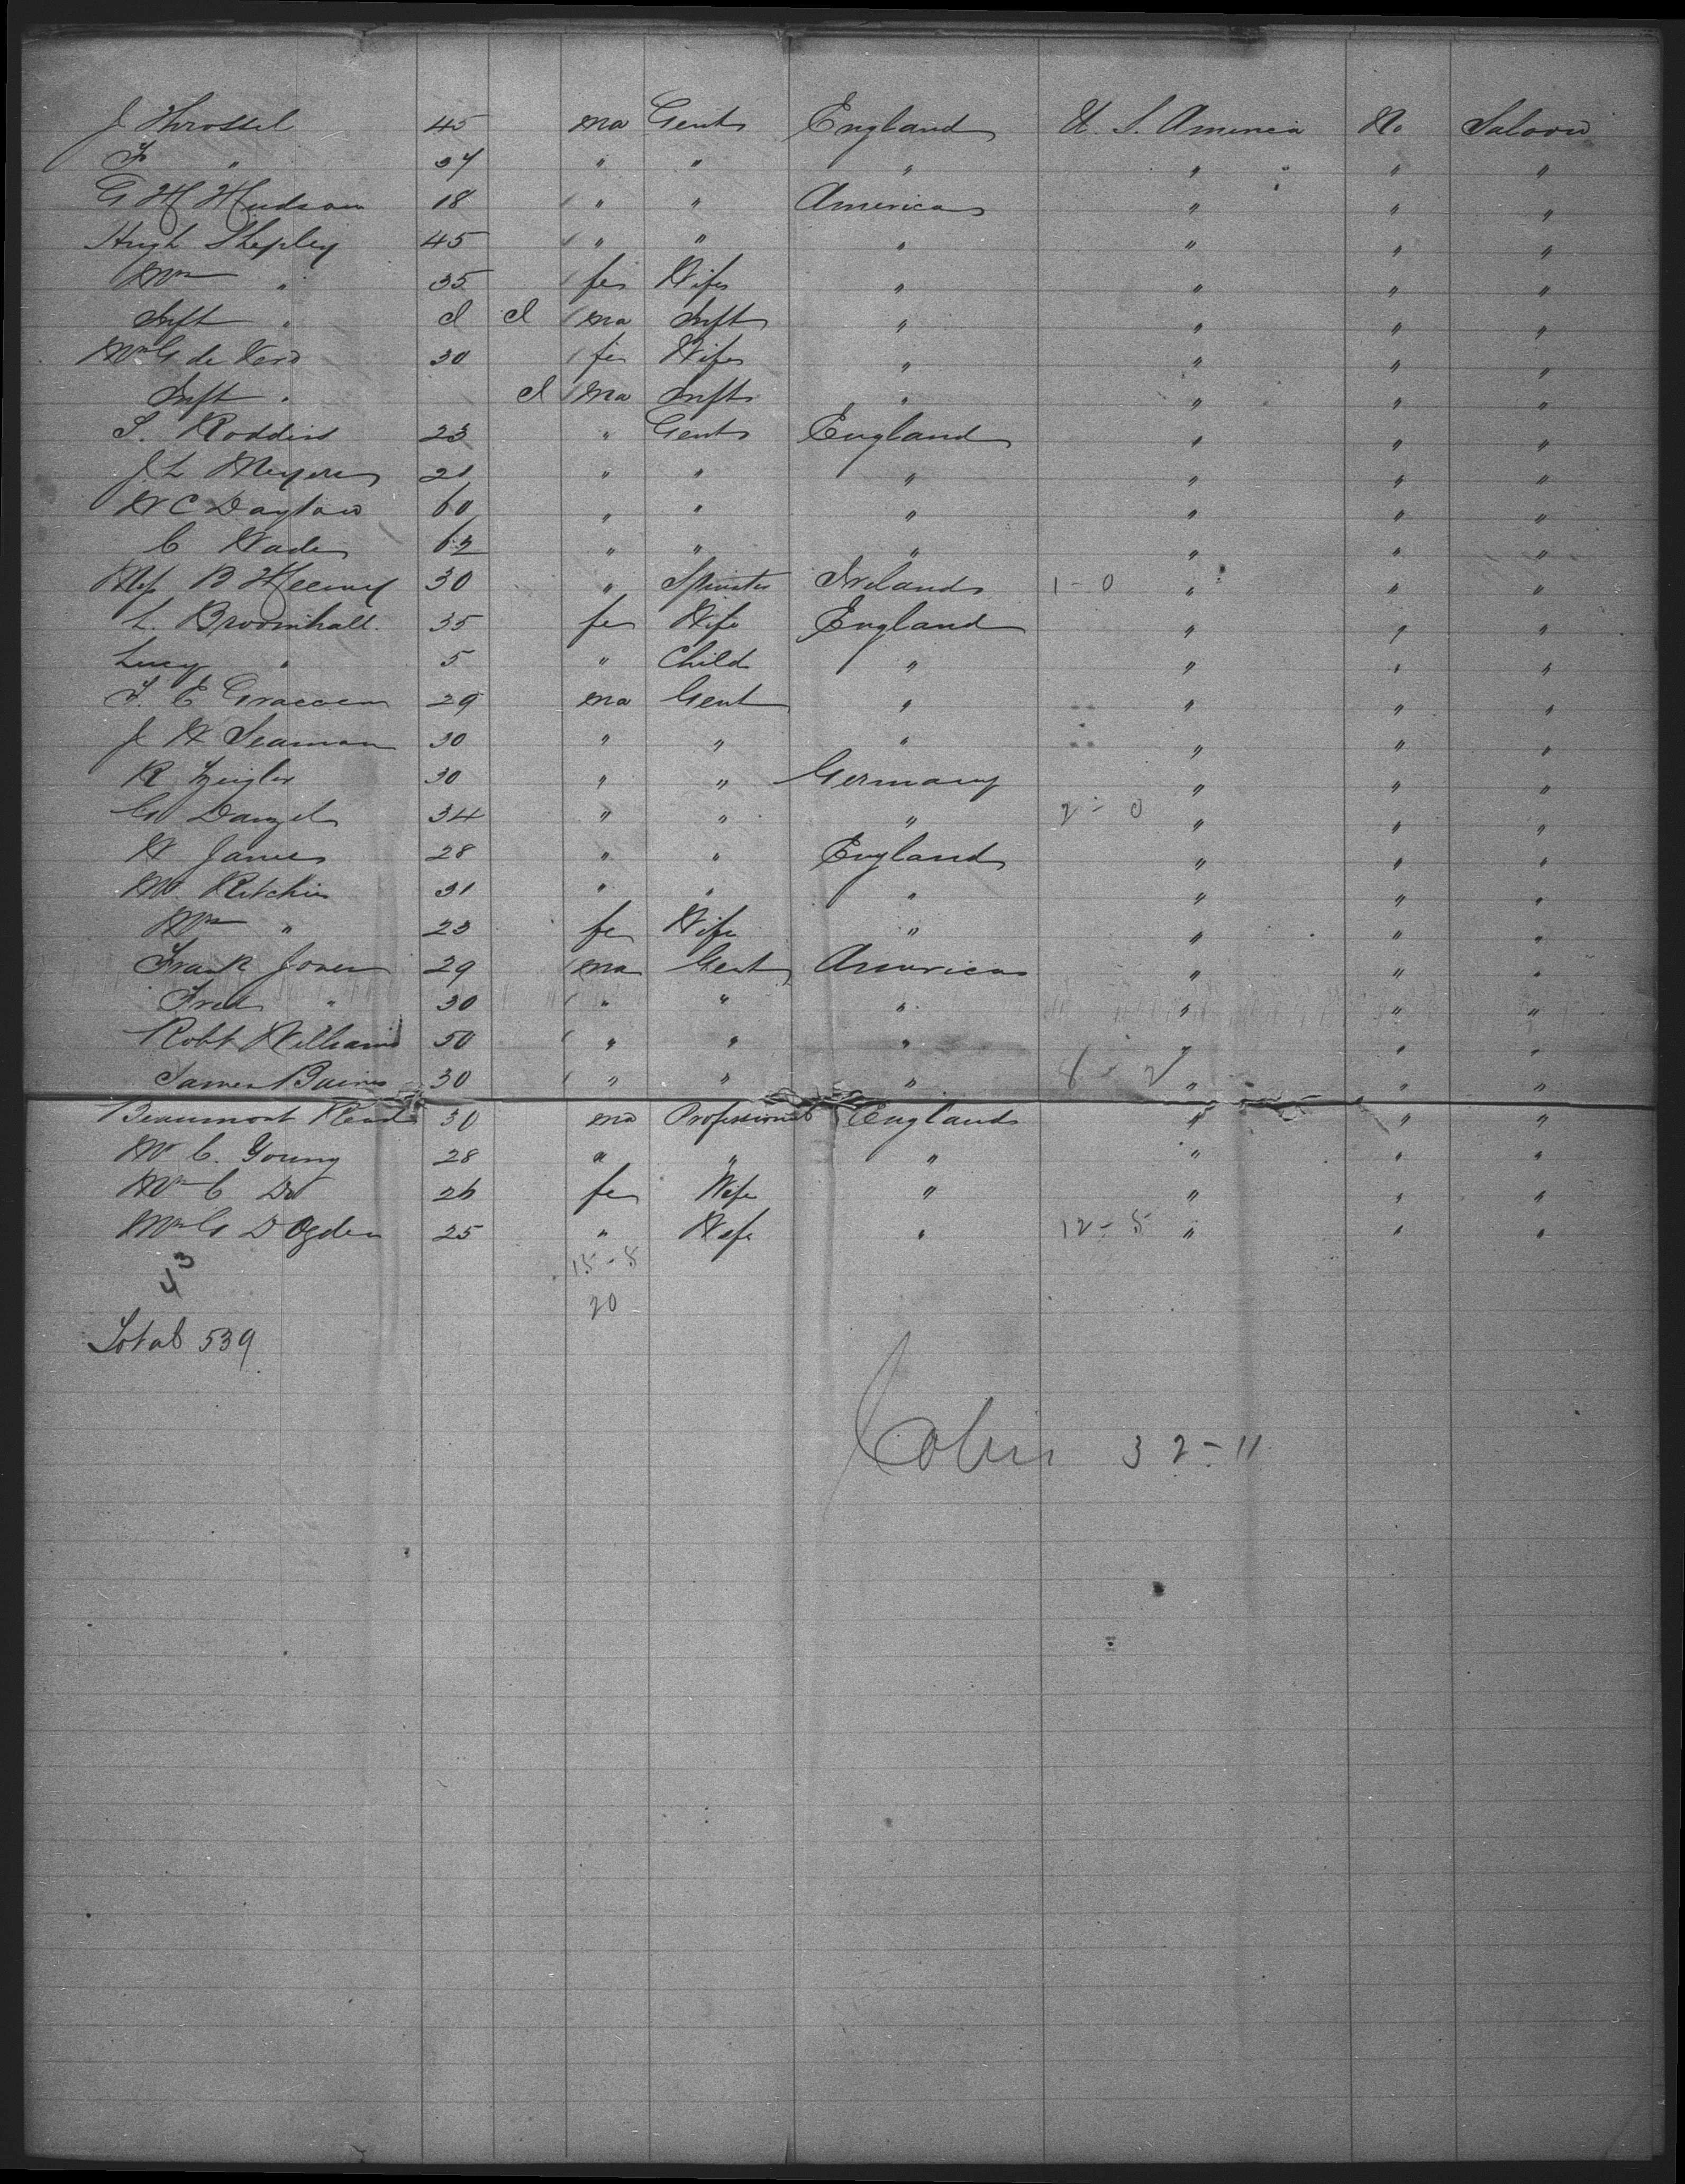 J Throssel 45 ma Gent England U. S. America No Saloon
F " 37 " " " " " "
G H Hudson 18 " " America " " "
Hugh Shepley 45 " " " " " "
Mrs " 35 fe Wife " " " "
Inft " cl cl ma Inft " " " "
Mrs G de Vere 30 fe Wife " " " "
Inft " cl ma Inft " " " "
S. Roddis 23 " Gent England " " "
J. L Meyers 21 " " " " " "
W C Dayton 60 " " " " " "
C Wade 62 " " " " " "
Miss B 30 " Spinster Ireland 1-0 " " "
L. Broomhall. 35 fe Wife England " " "
Lucy " 5 " Child " " " "
F. E 29 ma Gent " " " "
J W Seaman 30 " " " " " "
R Zeigler 30 " " Germany " " "
G Danzel 34 " " " 2-0 " " "
W James 28 " " England " " "
W. Ritchie 31 " " " " " "
Mrs " 23 fe Wife " " " "
Frank Jones 29 ma Gent America " " "
Fred " 30 " " " " " "
Robt Williams 50 " " " " " "
James Baines 30 " " " " " "
Beaumont Read 30 ma Professional England " " "
W C. Young 28 " " " " " "
Mrs C Do 26 fe Wife " " " "
Mrs G D Ogden 25 " Wife " 12-5 " " "
43 15-5
20
Total 539
Cabin 32-11